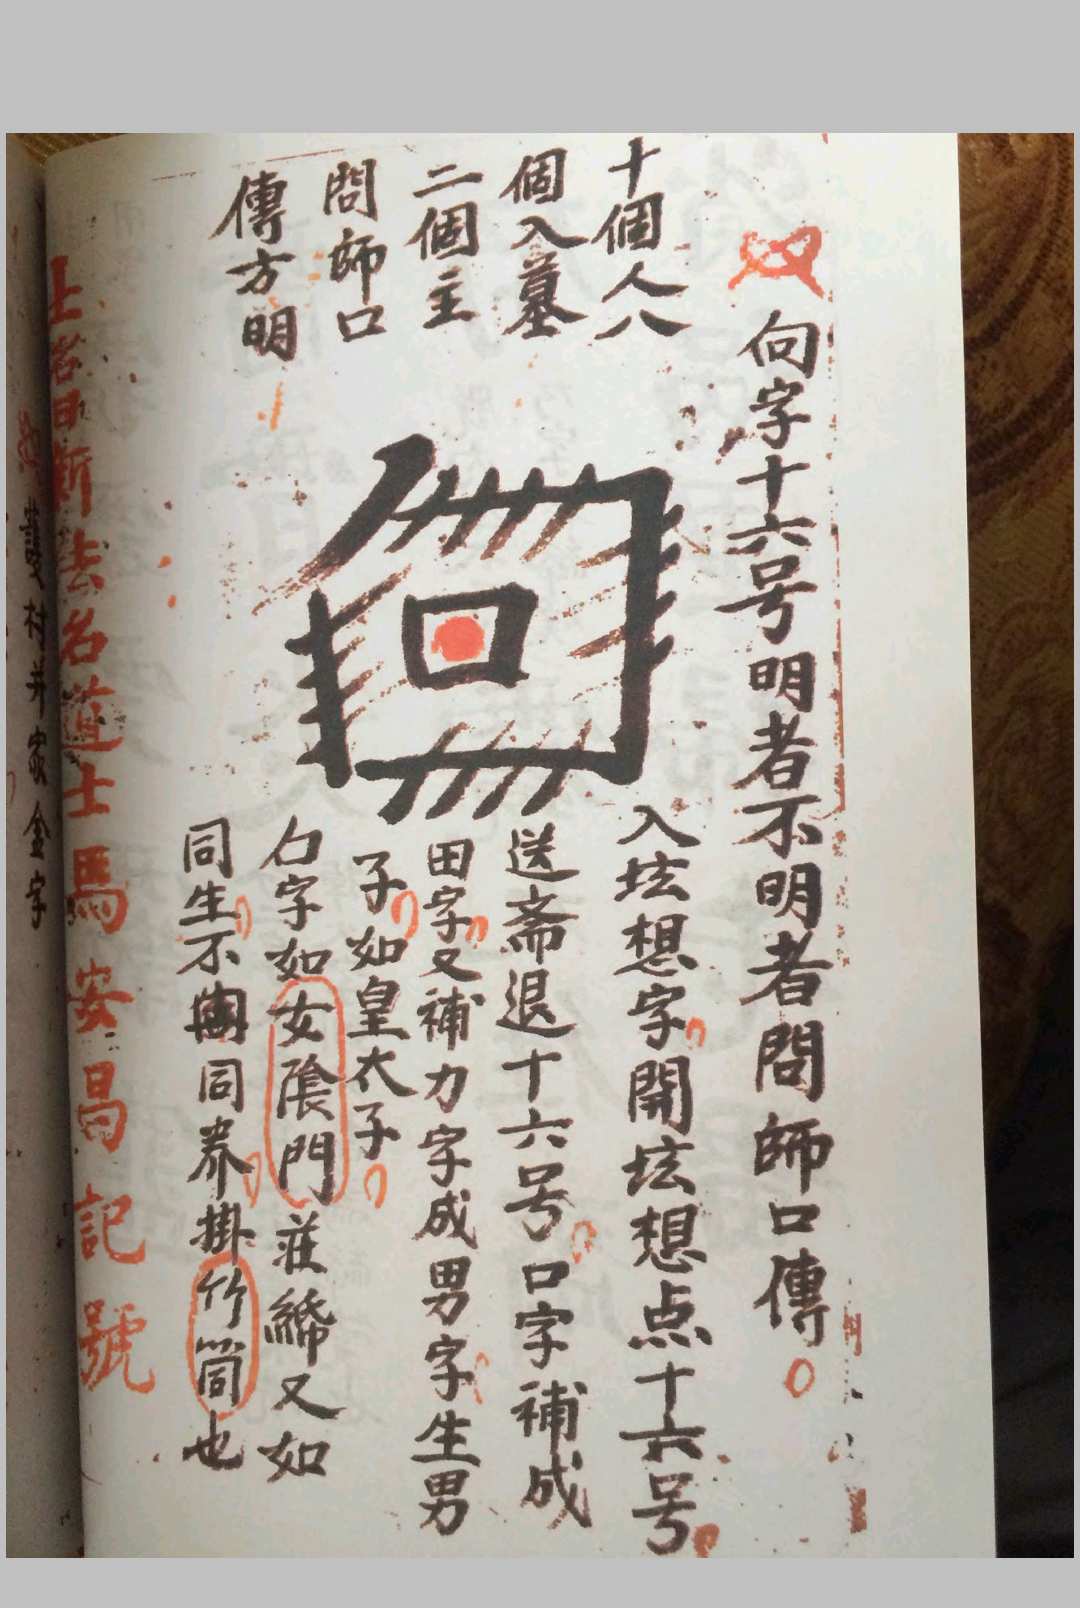 向字十六号明者不明者問師口傳
十個人八
個入墓
二個主
問師口
傳方明
向
入坛想字開坛想点十六号
送斋退十六号口字補成
田字又補力字成男字生男
子如皇太子
字如女陰門莊締又如
同生不同养掛竹筒也
法名道士馬安昌記號
村并家金字